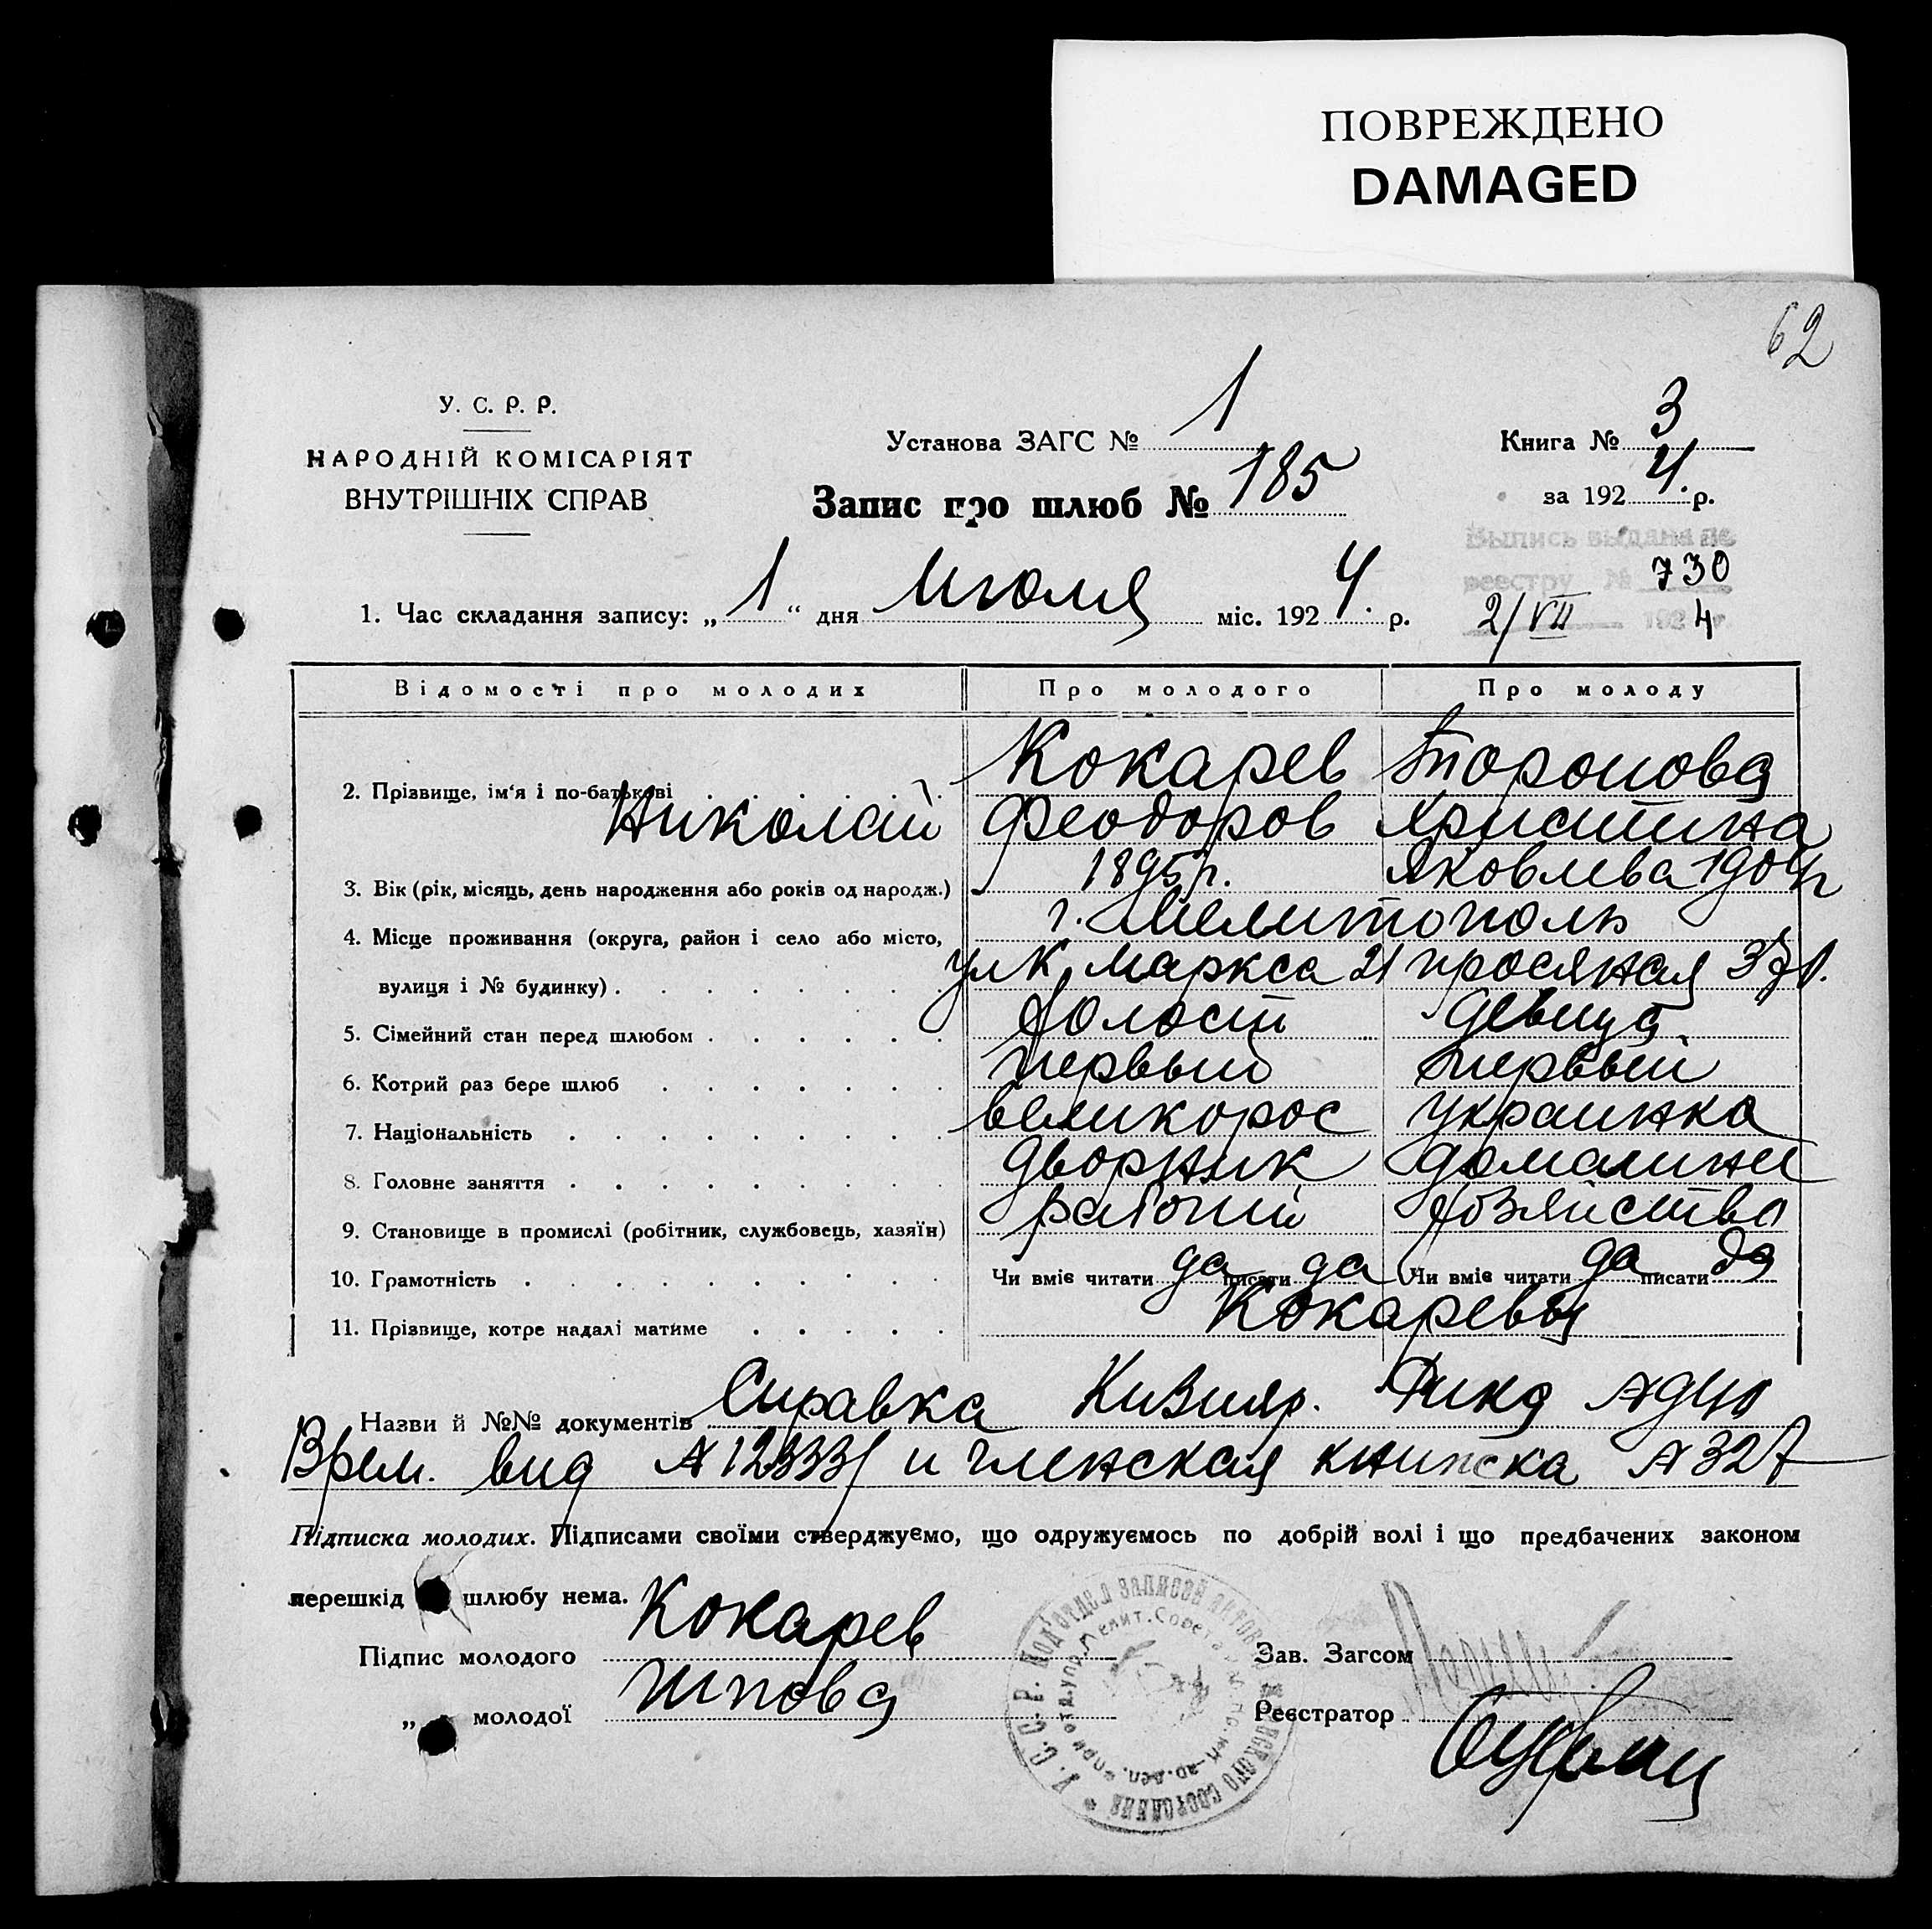 ПОВРЕЖДЕНО
DAMAGED
62
У. С. Р. Р.
НАРОДНІЙ КОМІСАРІЯТ
ВНУТРІШНІХ СПРАВ
Установа ЗАГС № 1
Книга № 3
Запис про шлюб № 185
за 1924. р.
Выпись выдана по
реестру № 730
2/VII 1924 г.
1. Час складання запису: „ 1 “ дня Июля міс. 1924. р.
Відомості про молодих Про молодого Про молоду
2. Прізвище, ім'я і по-батькові Кокарев
Николай Феодоров Христина
3. Вік (рік, місяць, день народження або років од народж.) 1895 г. Яковлева 1904 г
4. Місце проживання (округа, район і село або місто, г. Мелитополь
вулиця і № будинку) ул К. Маркса 21
5. Сімейний стан перед шлюбом Холост девица
6. Котрий раз бере шлюб первый первый
7. Національність великорос украинка
8. Головне заняття дворник домашнее
9. Становище в промислі (робітник, службовець, хазяїн) рабочий хозяйство
10. Грамотність Чи вміє читати да писати да Чи вміє читати да писати да
11. Прізвище, котре надалі матиме Кокаревы
Назви й №№ документів Справка
Врем. вид № 12333 и членская книжка № 327
Підписка молодих. Підписами своїми стверджуємо, що одружуємось по добрій волі і що предбачених законом
перешкід шлюбу нема.
Підпис молодого Кокарев
Зав. Загсом
„ молодої
Реєстратор
У. С. С. Р. Подотдел записей актов гражданского состояния